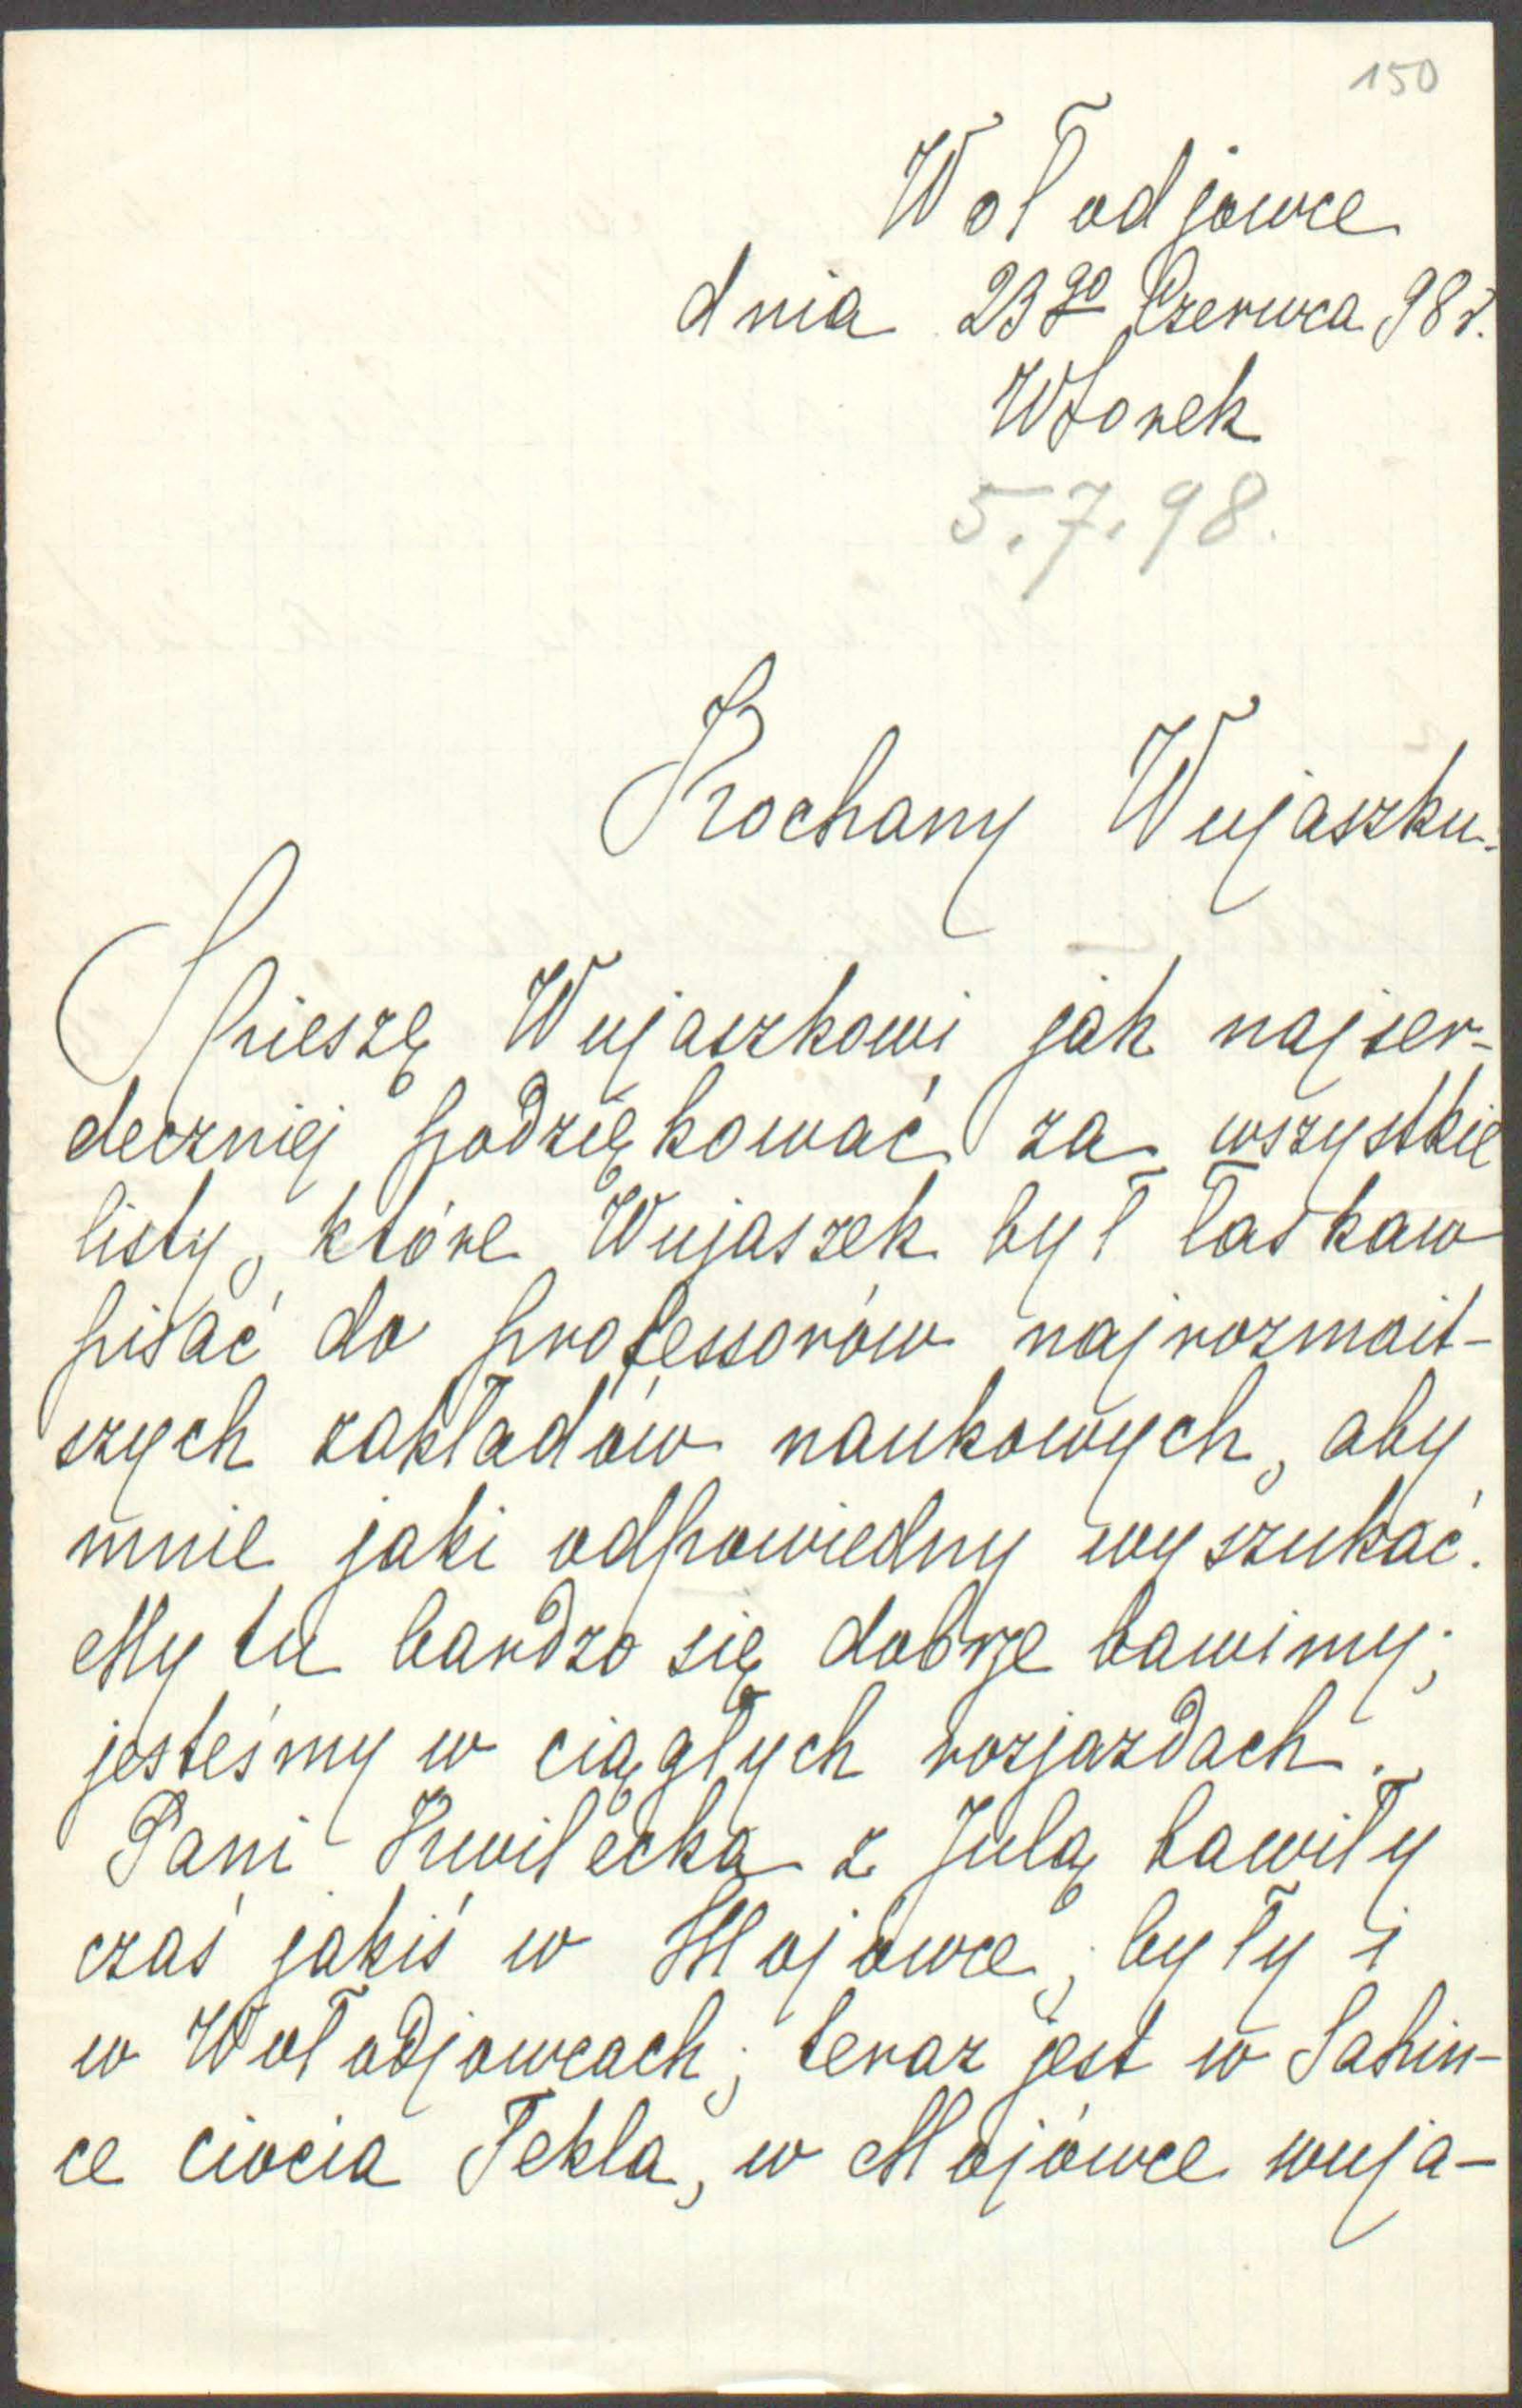 150
Wołodjowce
dnia 23go Czerwca 98 r.
Wtorek
5.7.98.
Kochany Wujaszku.
Spieszę Wujaszkowi jak najser-
deczniej podziękować za wszystkie
listy, które Wujaszek był łaskaw
pisać do professorów najrozmait-
szych zakładów naukowych, aby
mnie jaki odpowiedny wyszukać.
My tu bardzo się dobrze bawimy;
jesteśmy w ciągłych rozjazdach.
Pani Kwilecka z Julą bawiły
czas jakiś w Mojówce, były i
w Wołodjowcach; teraz jest w Sahin-
ce ciocia Tekla, w Mojówce wuja-